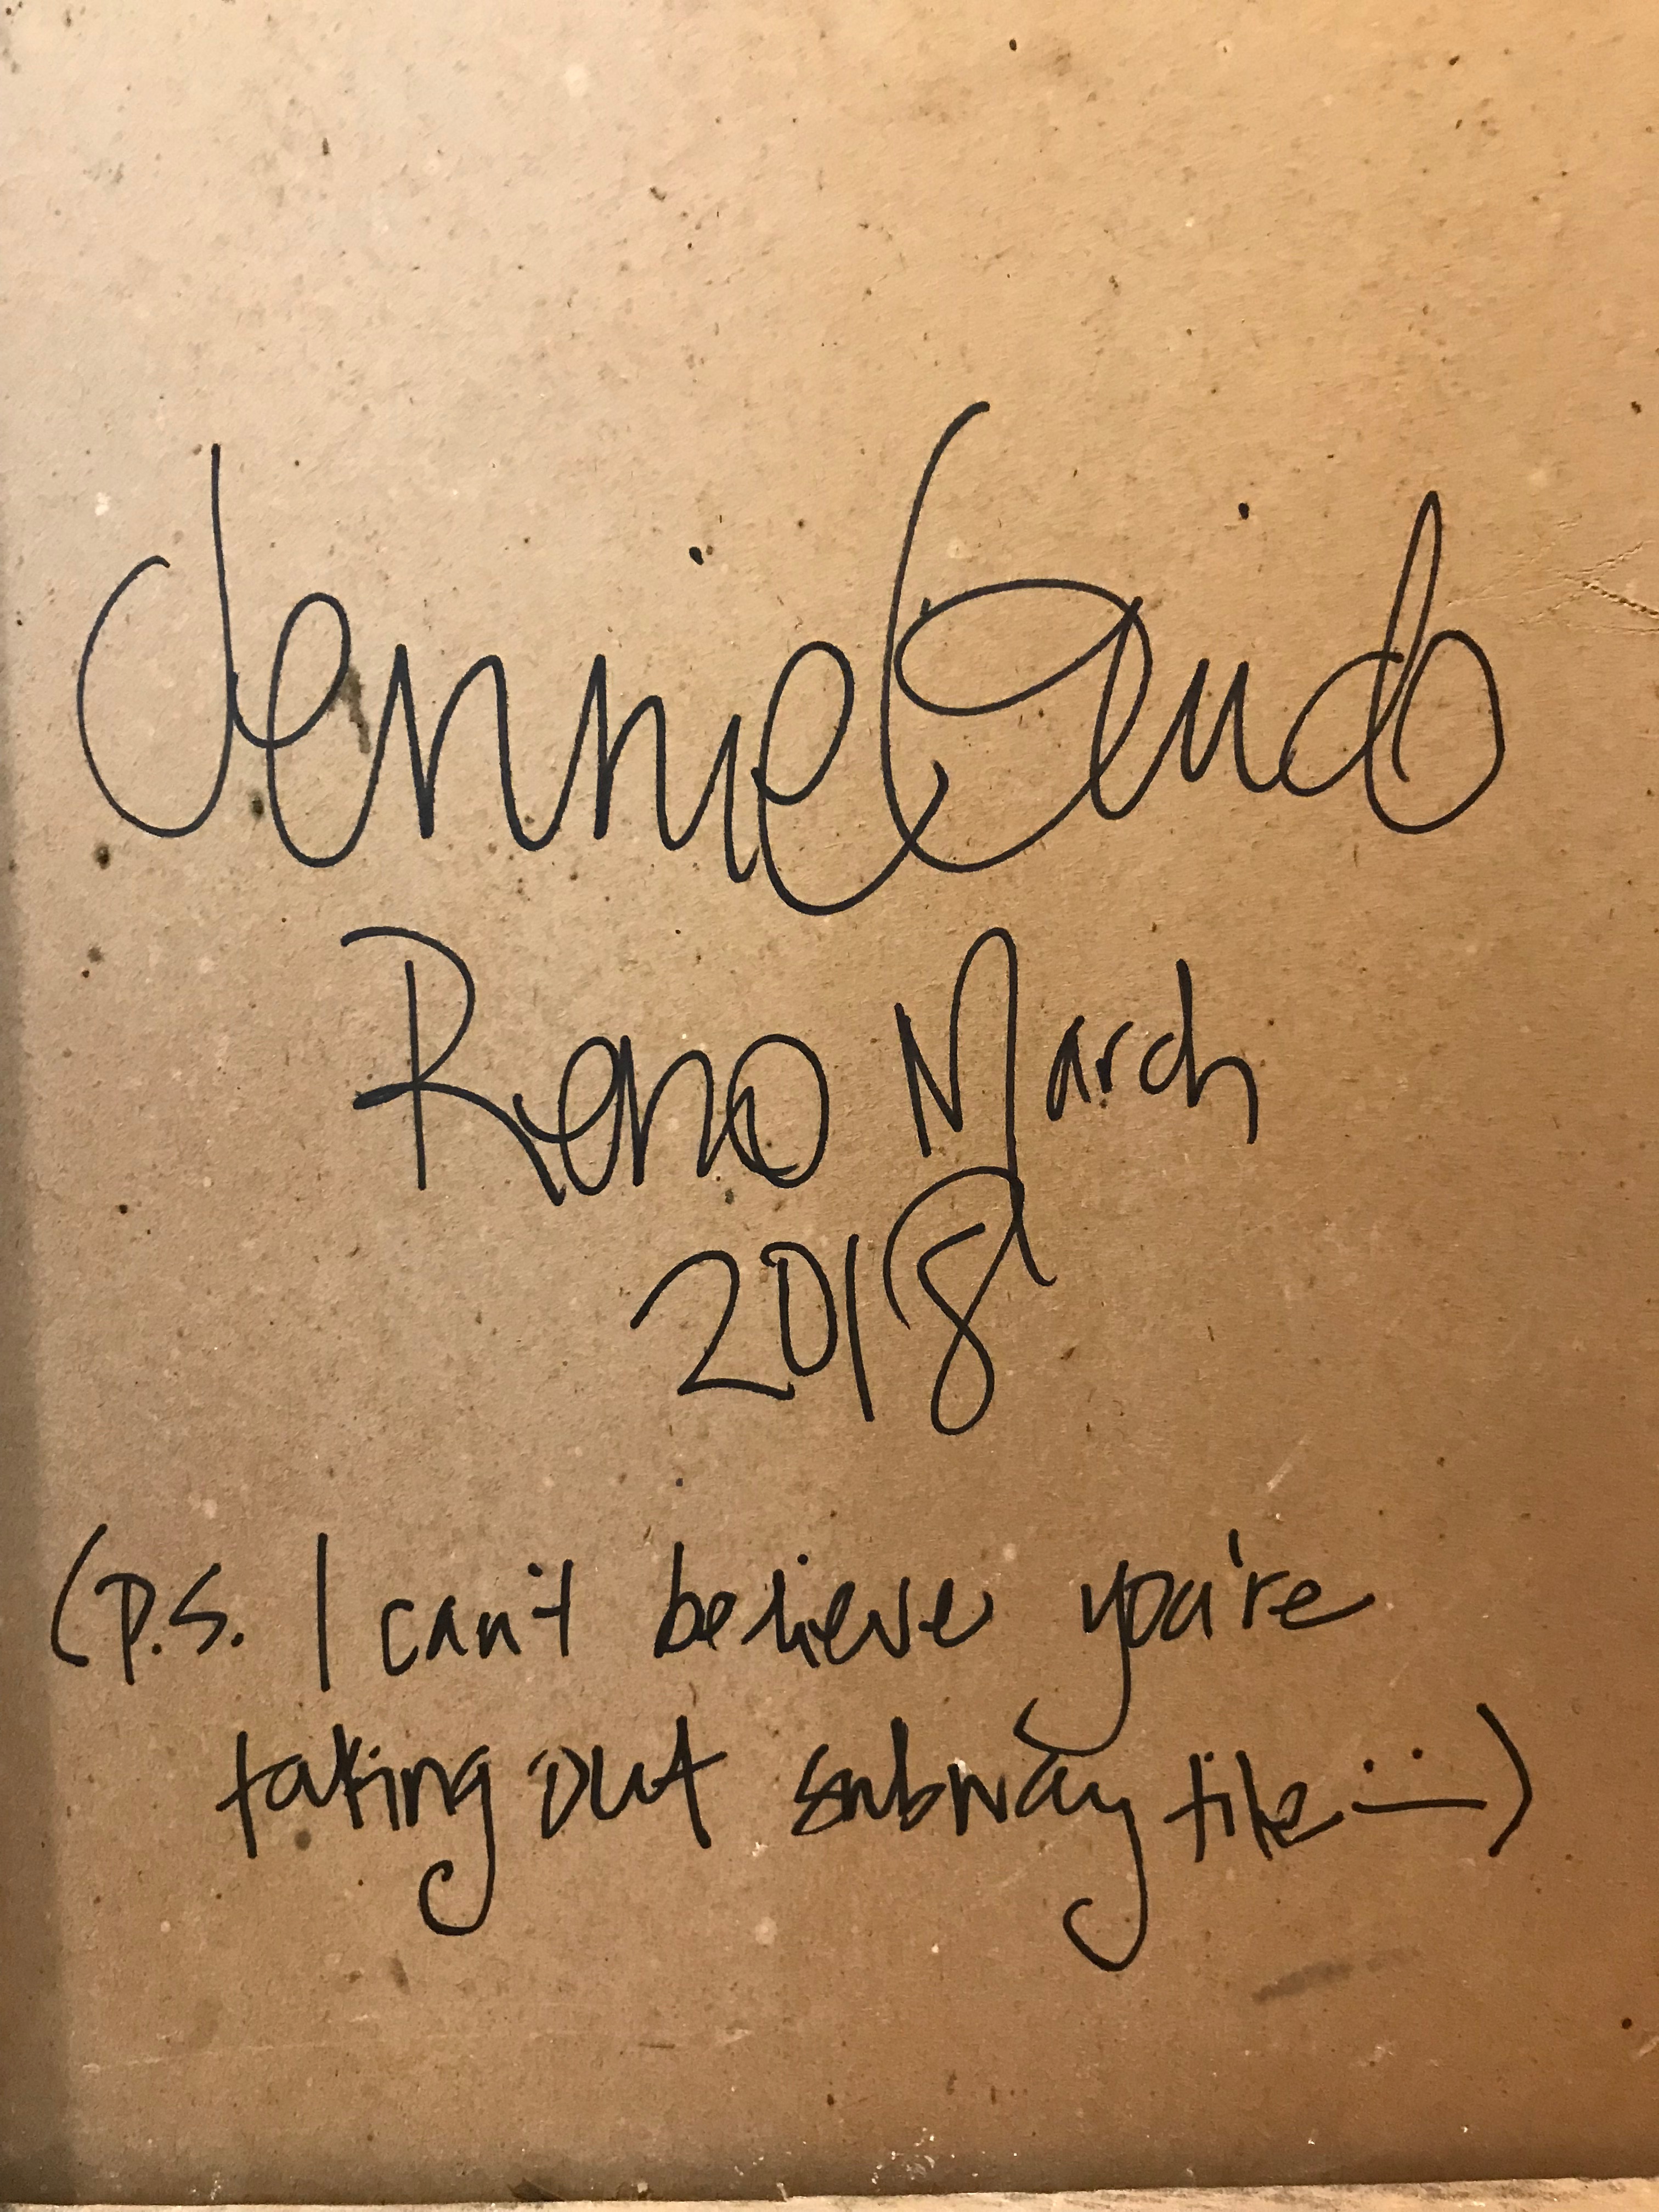 Jennie
Reno March
2018
(P.S. I can't believe you're
taking out subway tile)